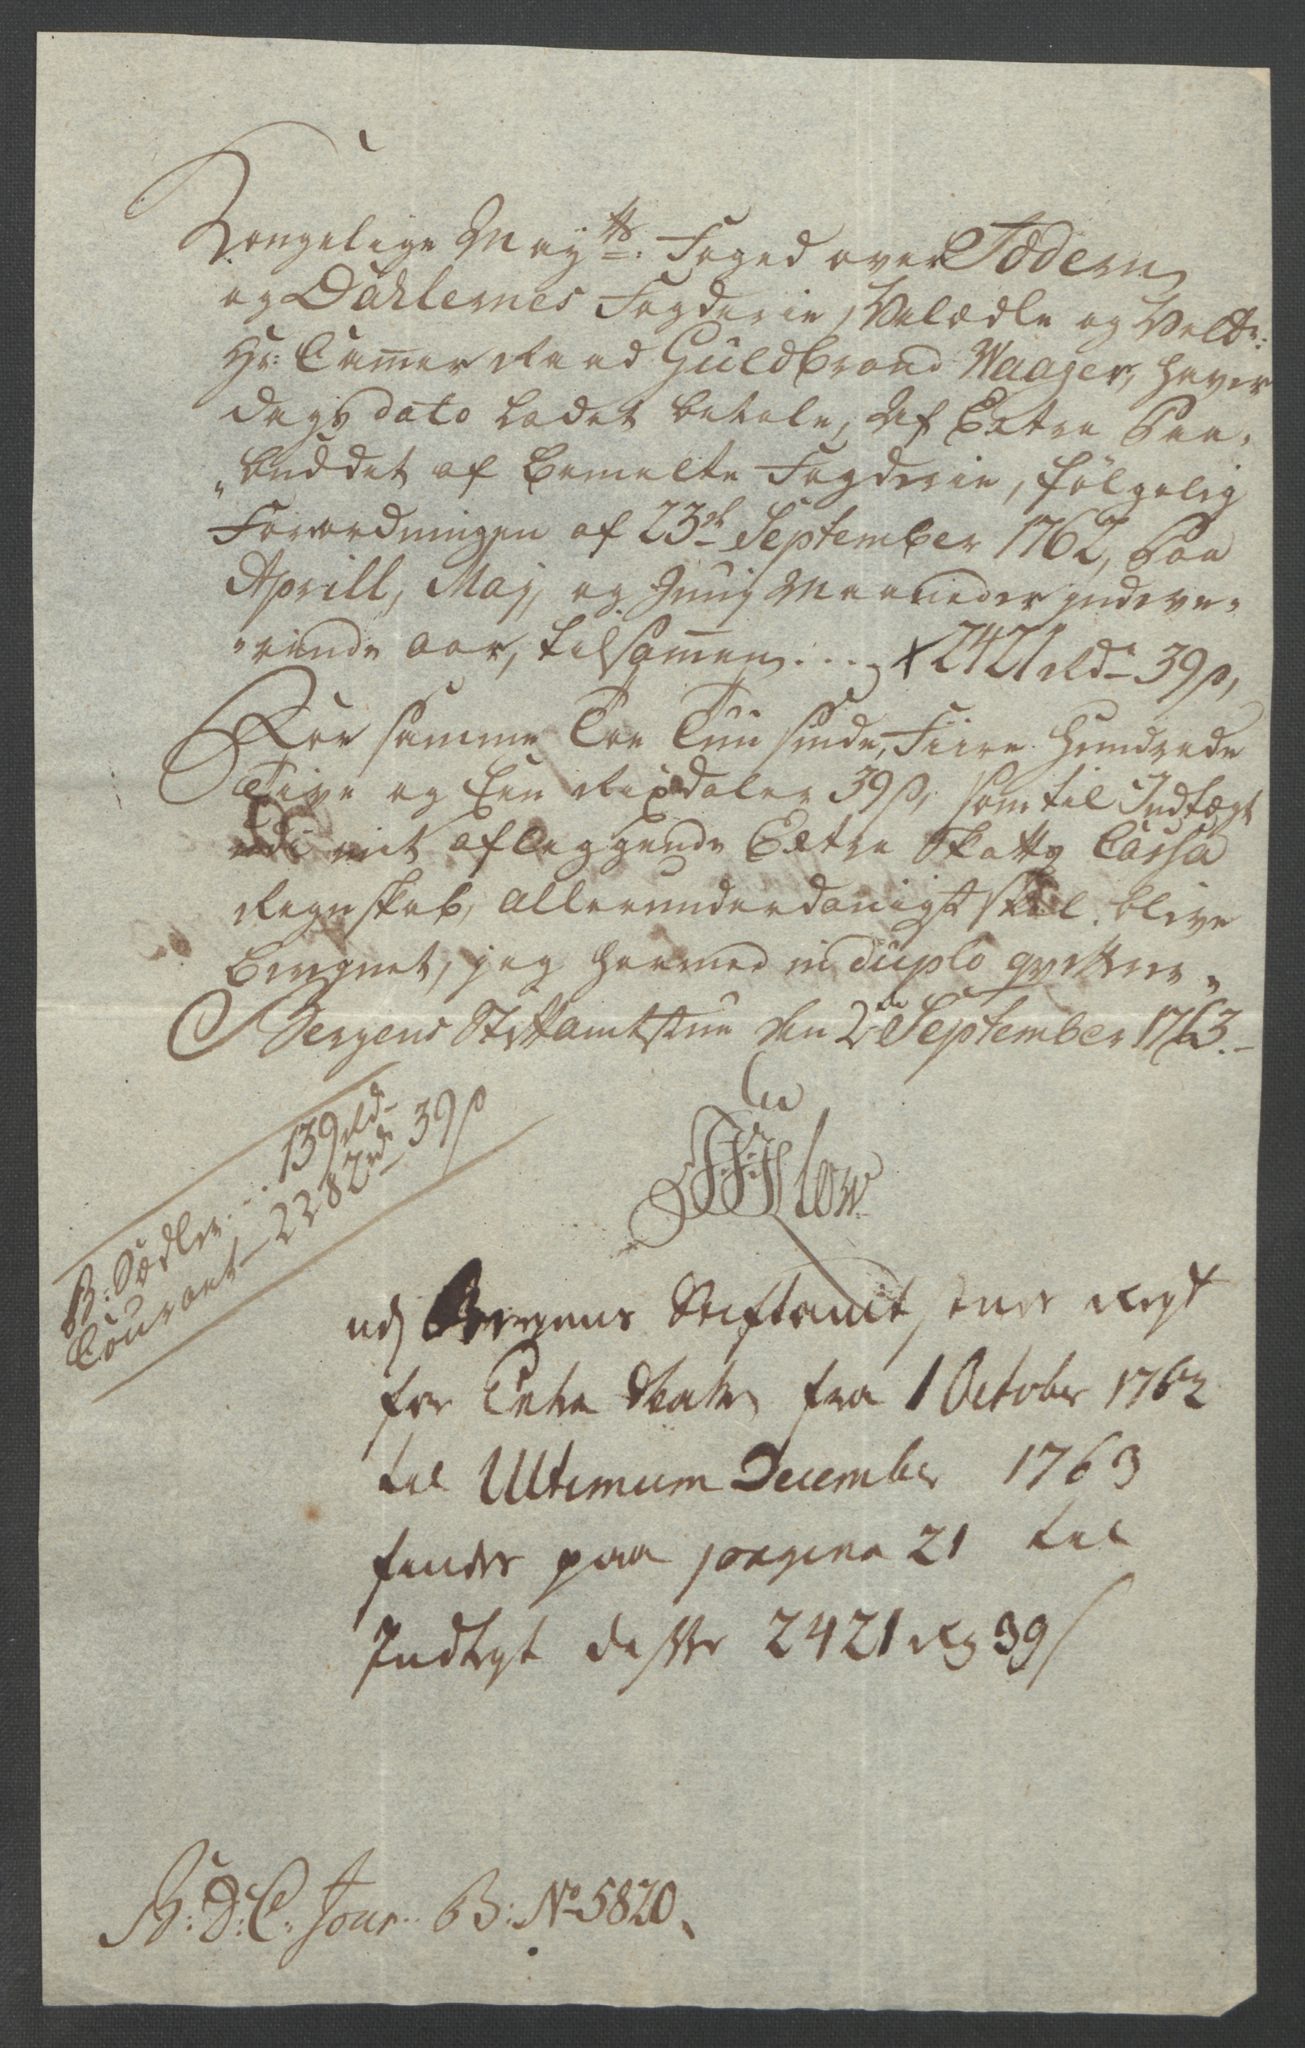 Kongelige Mayts: Foged over Jæderen
og Dahlernes Fogderie, Velædle og Velbr:
Hr: Cammer Raad Guldbrand Waager, haver
dags dato ladet betale, Af Extra Paa-
"buddet af bemelte Fogderie, følgelig
Forordningen af 23de September 1762, paa
Aprill, Maj, og Junij Maaneder inderæ-
"rende aar, tilsammen .... 2421 Rdr 39 s,
For samme Toe Tuusinde, Fiire Hundrede
Tive og Een Rixdaler 39 s, som til Indtægt
udi mit aflæggende Extra Skatts Cassa
Regnskab, allerunderdanigst skal blive
beregnet, jeg hermed in duplo qvitterer,
Bergens Stiftamtstue den 2den September 1763.
Bülow
B: Sædler ... 139 Rd
Courant 2282 rd 39 s
udj Bergens Stiftamt, dets Regst
for Extra Skatten fra 1 October 1762
til Ultimum December 1763
findes paa pagina 21 til
Indtegt disse 2421 Rd 39 s
D: C: Jour. B: No 5820.